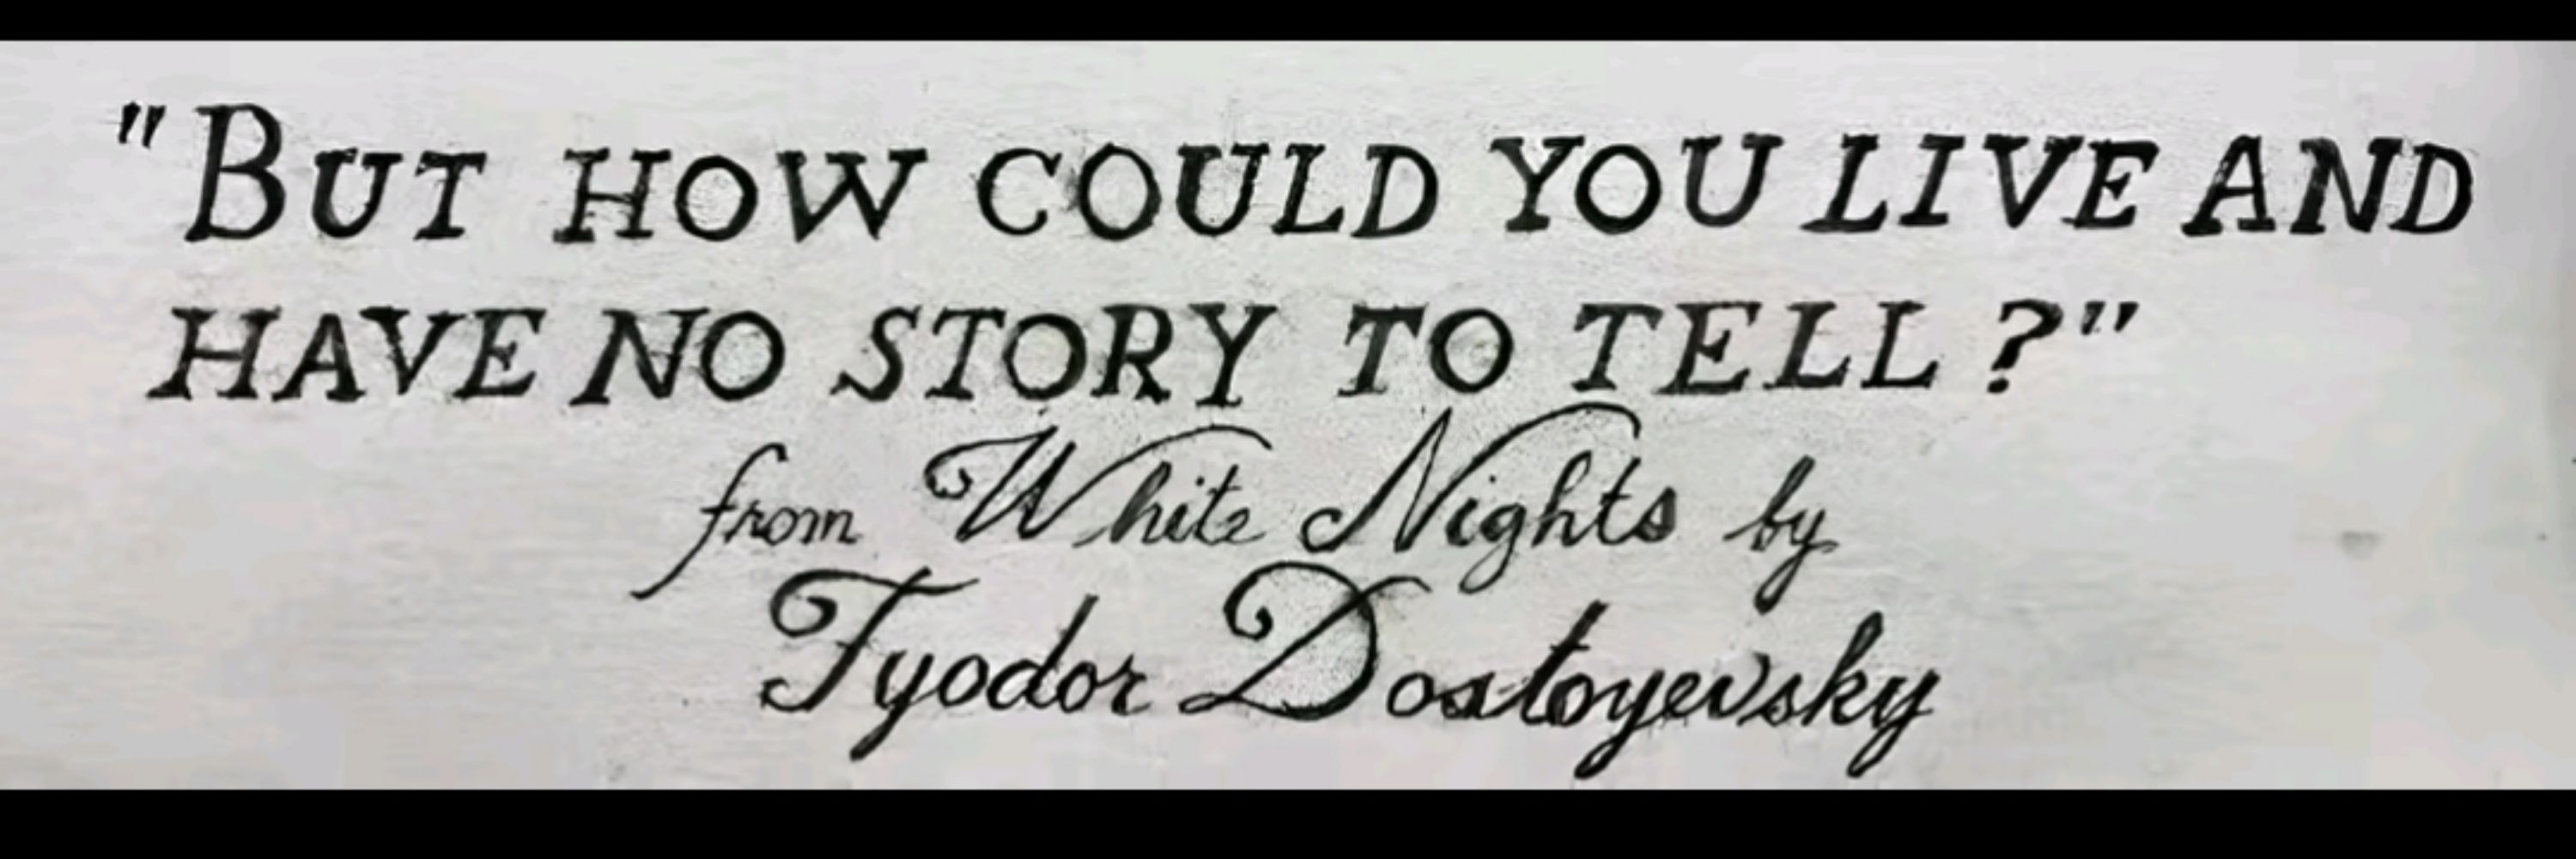 "BUT HOW COULD YOU LIVE AND
HAVE NO STORY TO TELL?"
from White Nights by
Fyodor Dostoyevsky